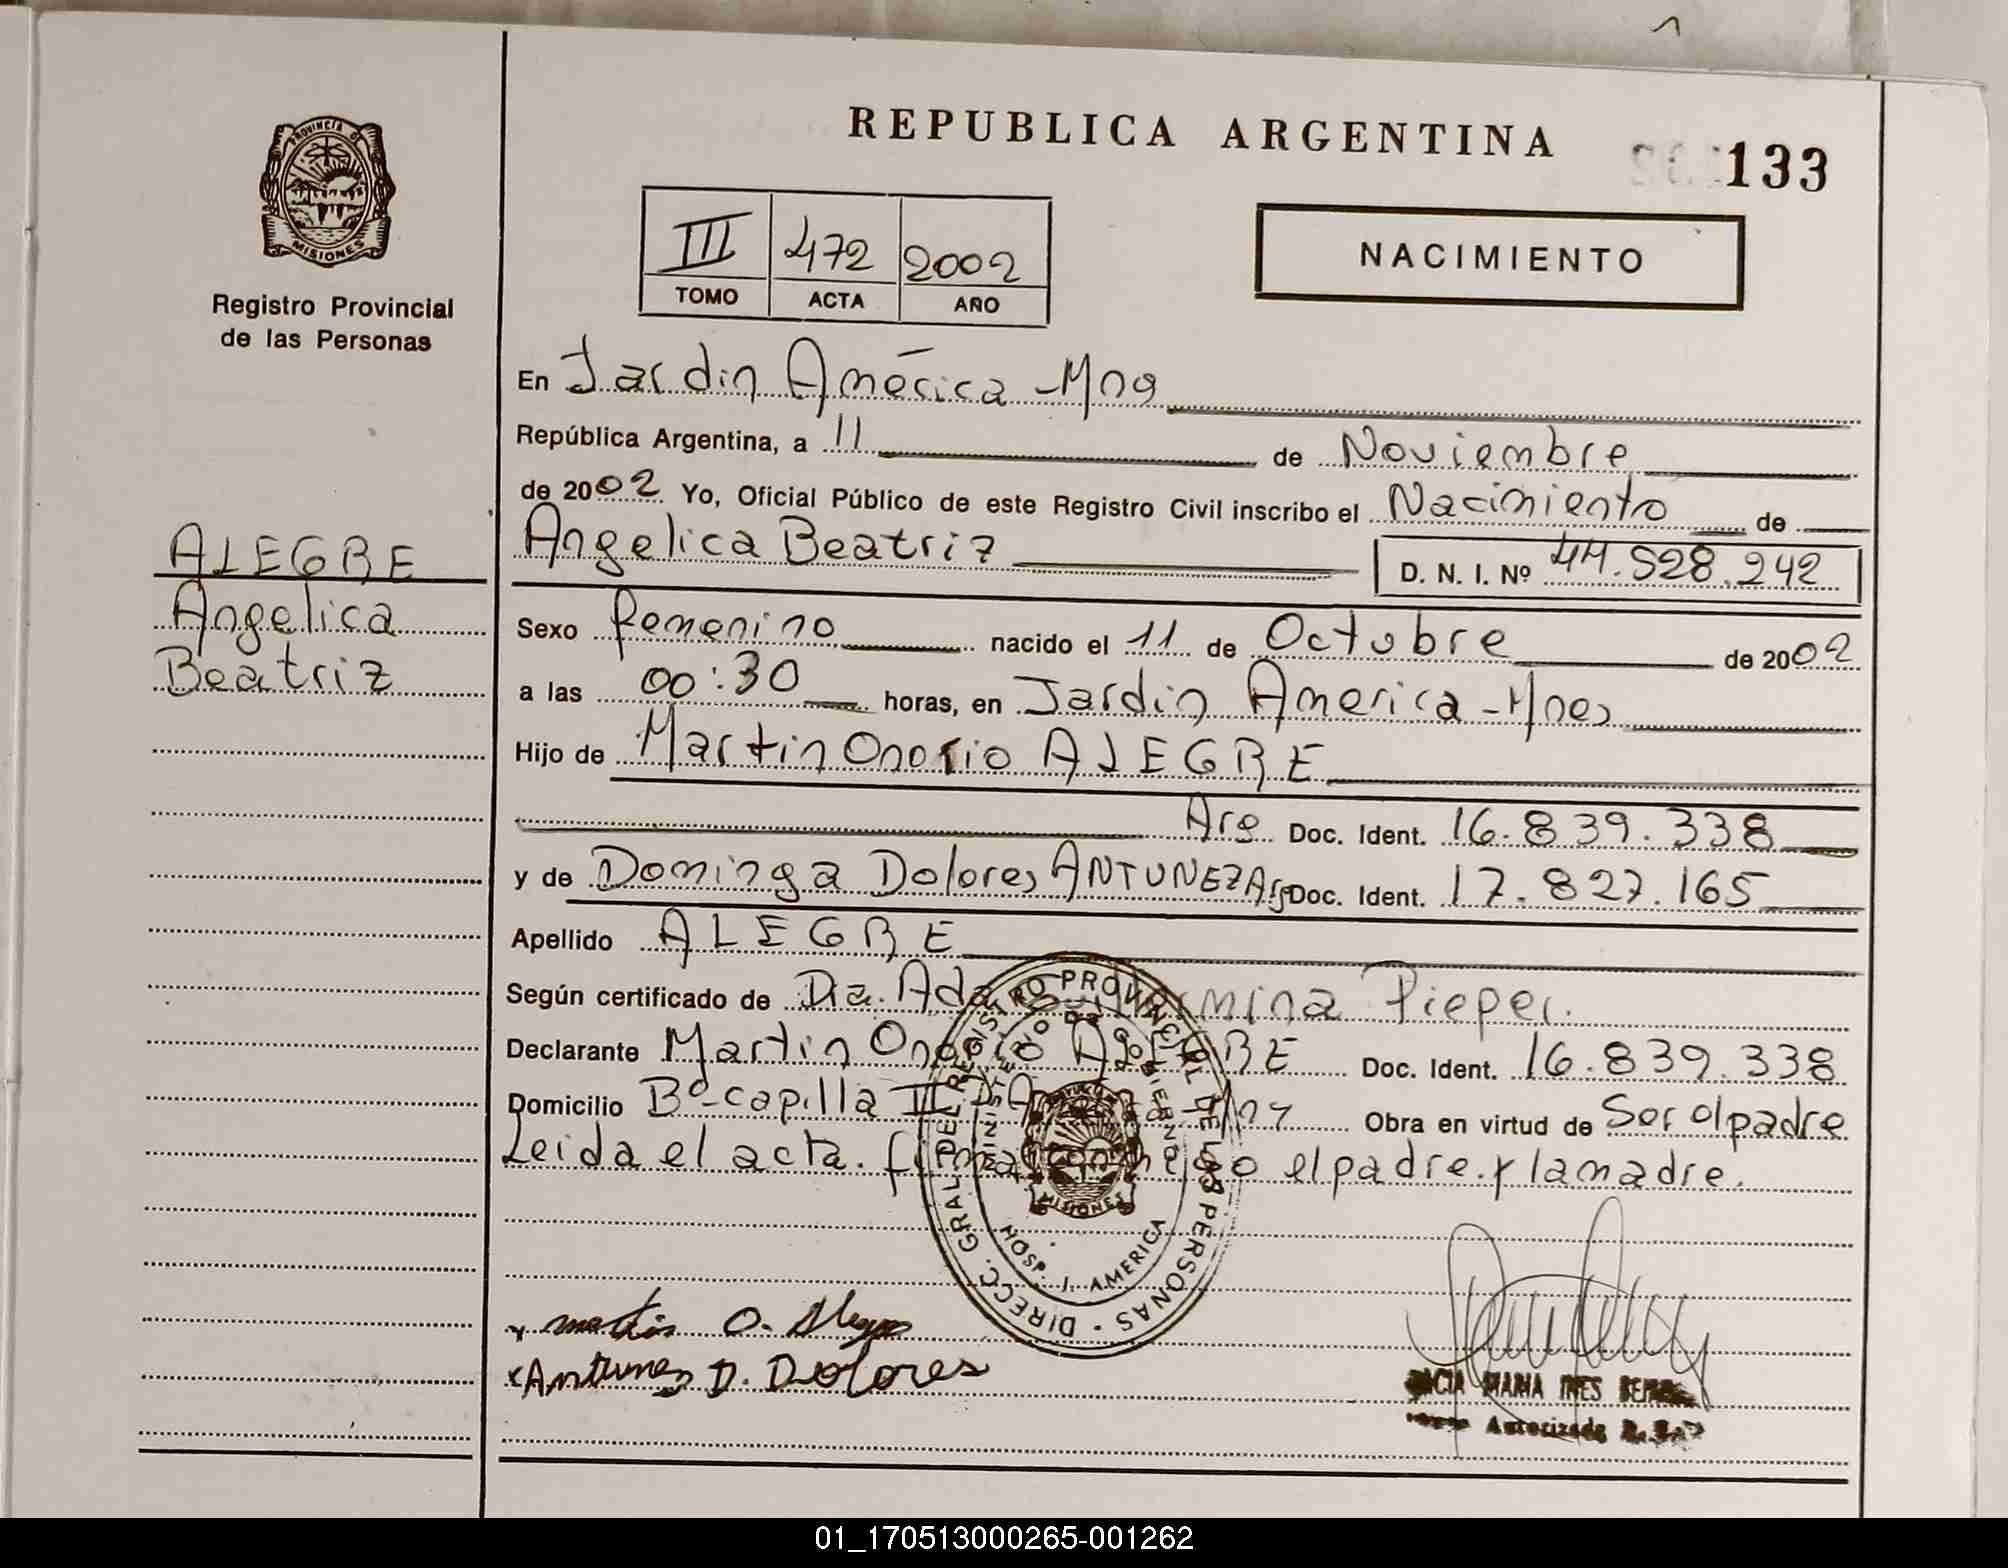 REPUBLICA ARGENTINA
133
PROVINCIA DE
MISIONES
Registro Provincial
de las Personas
III 472 2002
TOMO ACTA AÑO
NACIMIENTO
En Jardin América - Mns
República Argentina, a 11 de Noviembre
de 2002 Yo, Oficial Público de este Registro Civil inscribo el Nacimiento de
Angelica Beatriz D. N. I. Nº 44.528.242
ALEGRE
Angelica
Beatriz
Sexo femenino nacido el 11 de Octubre de 2002
a las 00:30 horas, en Jardin America - Mnes
Hijo de Martin Onorio ALEGRE
Arg Doc. Ident. 16.839.338
y de Dominga Dolores ANTUNEZ Arg Doc. Ident. 17.827.165
Apellido ALEGRE
Según certificado de Dra. Pieper.
Declarante Martin Onorio ALEGRE Doc. Ident. 16.839.338
Domicilio Bº capilla II Obra en virtud de Ser el padre
Leida el acta. el padre y la madre.
DIRECC. GRAL. DEL REGISTRO PROVINCIAL DE LAS PERSONAS
MINISTERIO DE GOBIERNO
MISIONES
HOSP. J. AMERICA
x martin O. Alegre
x Antunez D. Dolores
MARIA INES
Autorizada
01_170513000265-001262